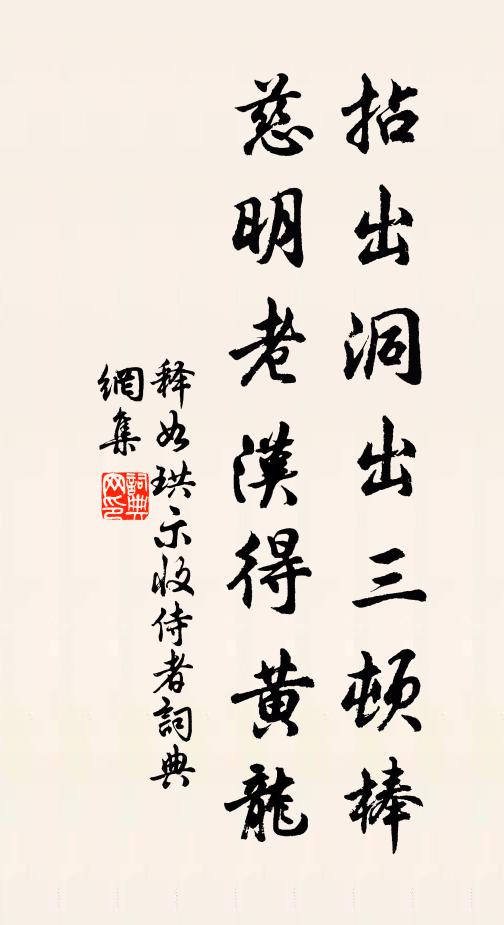 拈出洞出三頓棒
慈明老漢得黃龍
释如珙示收侍者詞典
網集
詞典网印